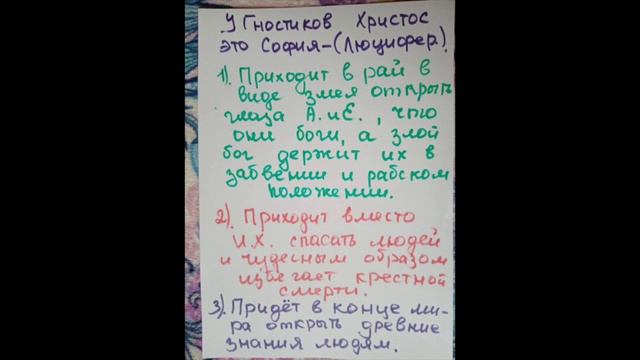 У Гностиков Христос
это София-(Люцифер).
1). Приходит в рай в
виде змея открыть
глаза А. и Е., что
они боги, а злой
бог держит их в
забвении и рабском
положении.
2). Приходит вместо
И.Х. спасать людей
и чудесным образом
избегает крестной
смерти.
3). Придёт в конце ми-
ра открыть древние
знания людям.